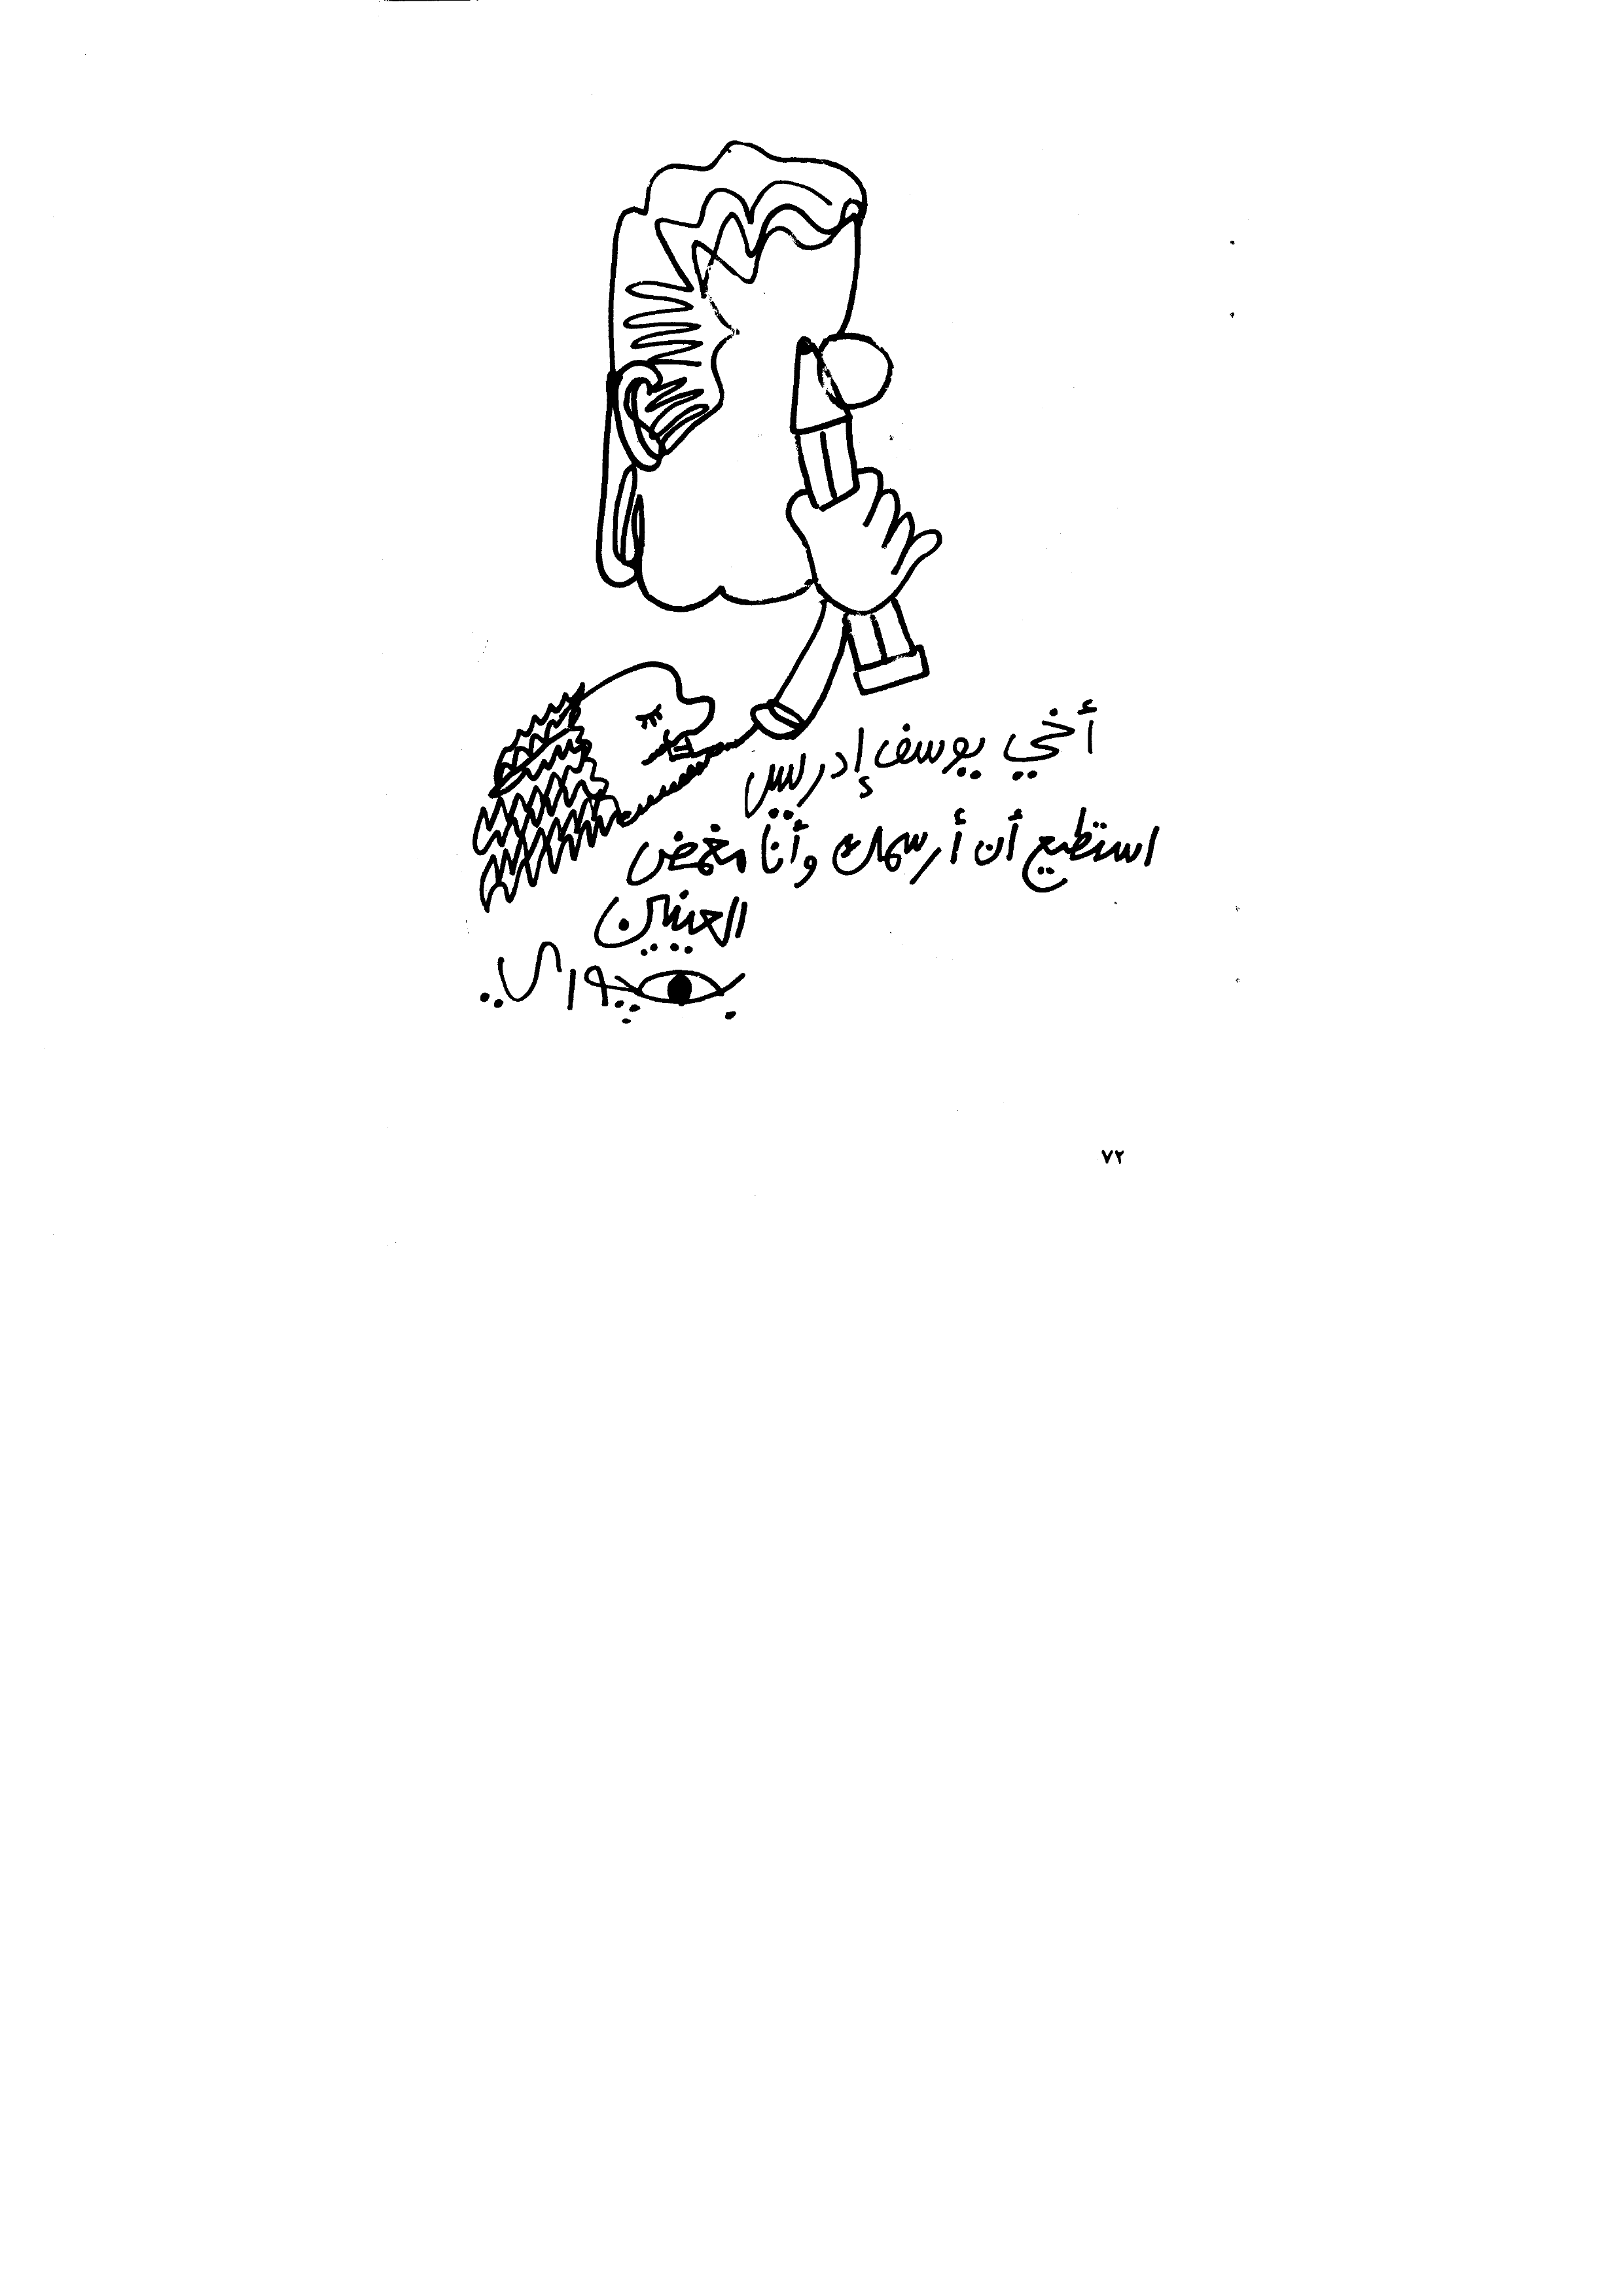 أخي يوسف إدريس
استطيع أن أرسمك وأنا مغمض
العينين
٧٢